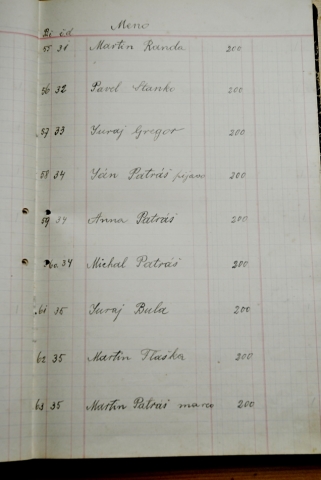 Bi čd Meno
55 31 Martin Randa 200
56 32 Pavel Stanko 200
57 33 Juraj Gregor 200
58 34 Ján Patráš 200
59 34 Anna Patráš 200
60. 34 Michal Patráš 200
61 35 Juraj Bula 200
62 35 Martin Fľaška 200
63 35 Martin Patráš marco 200